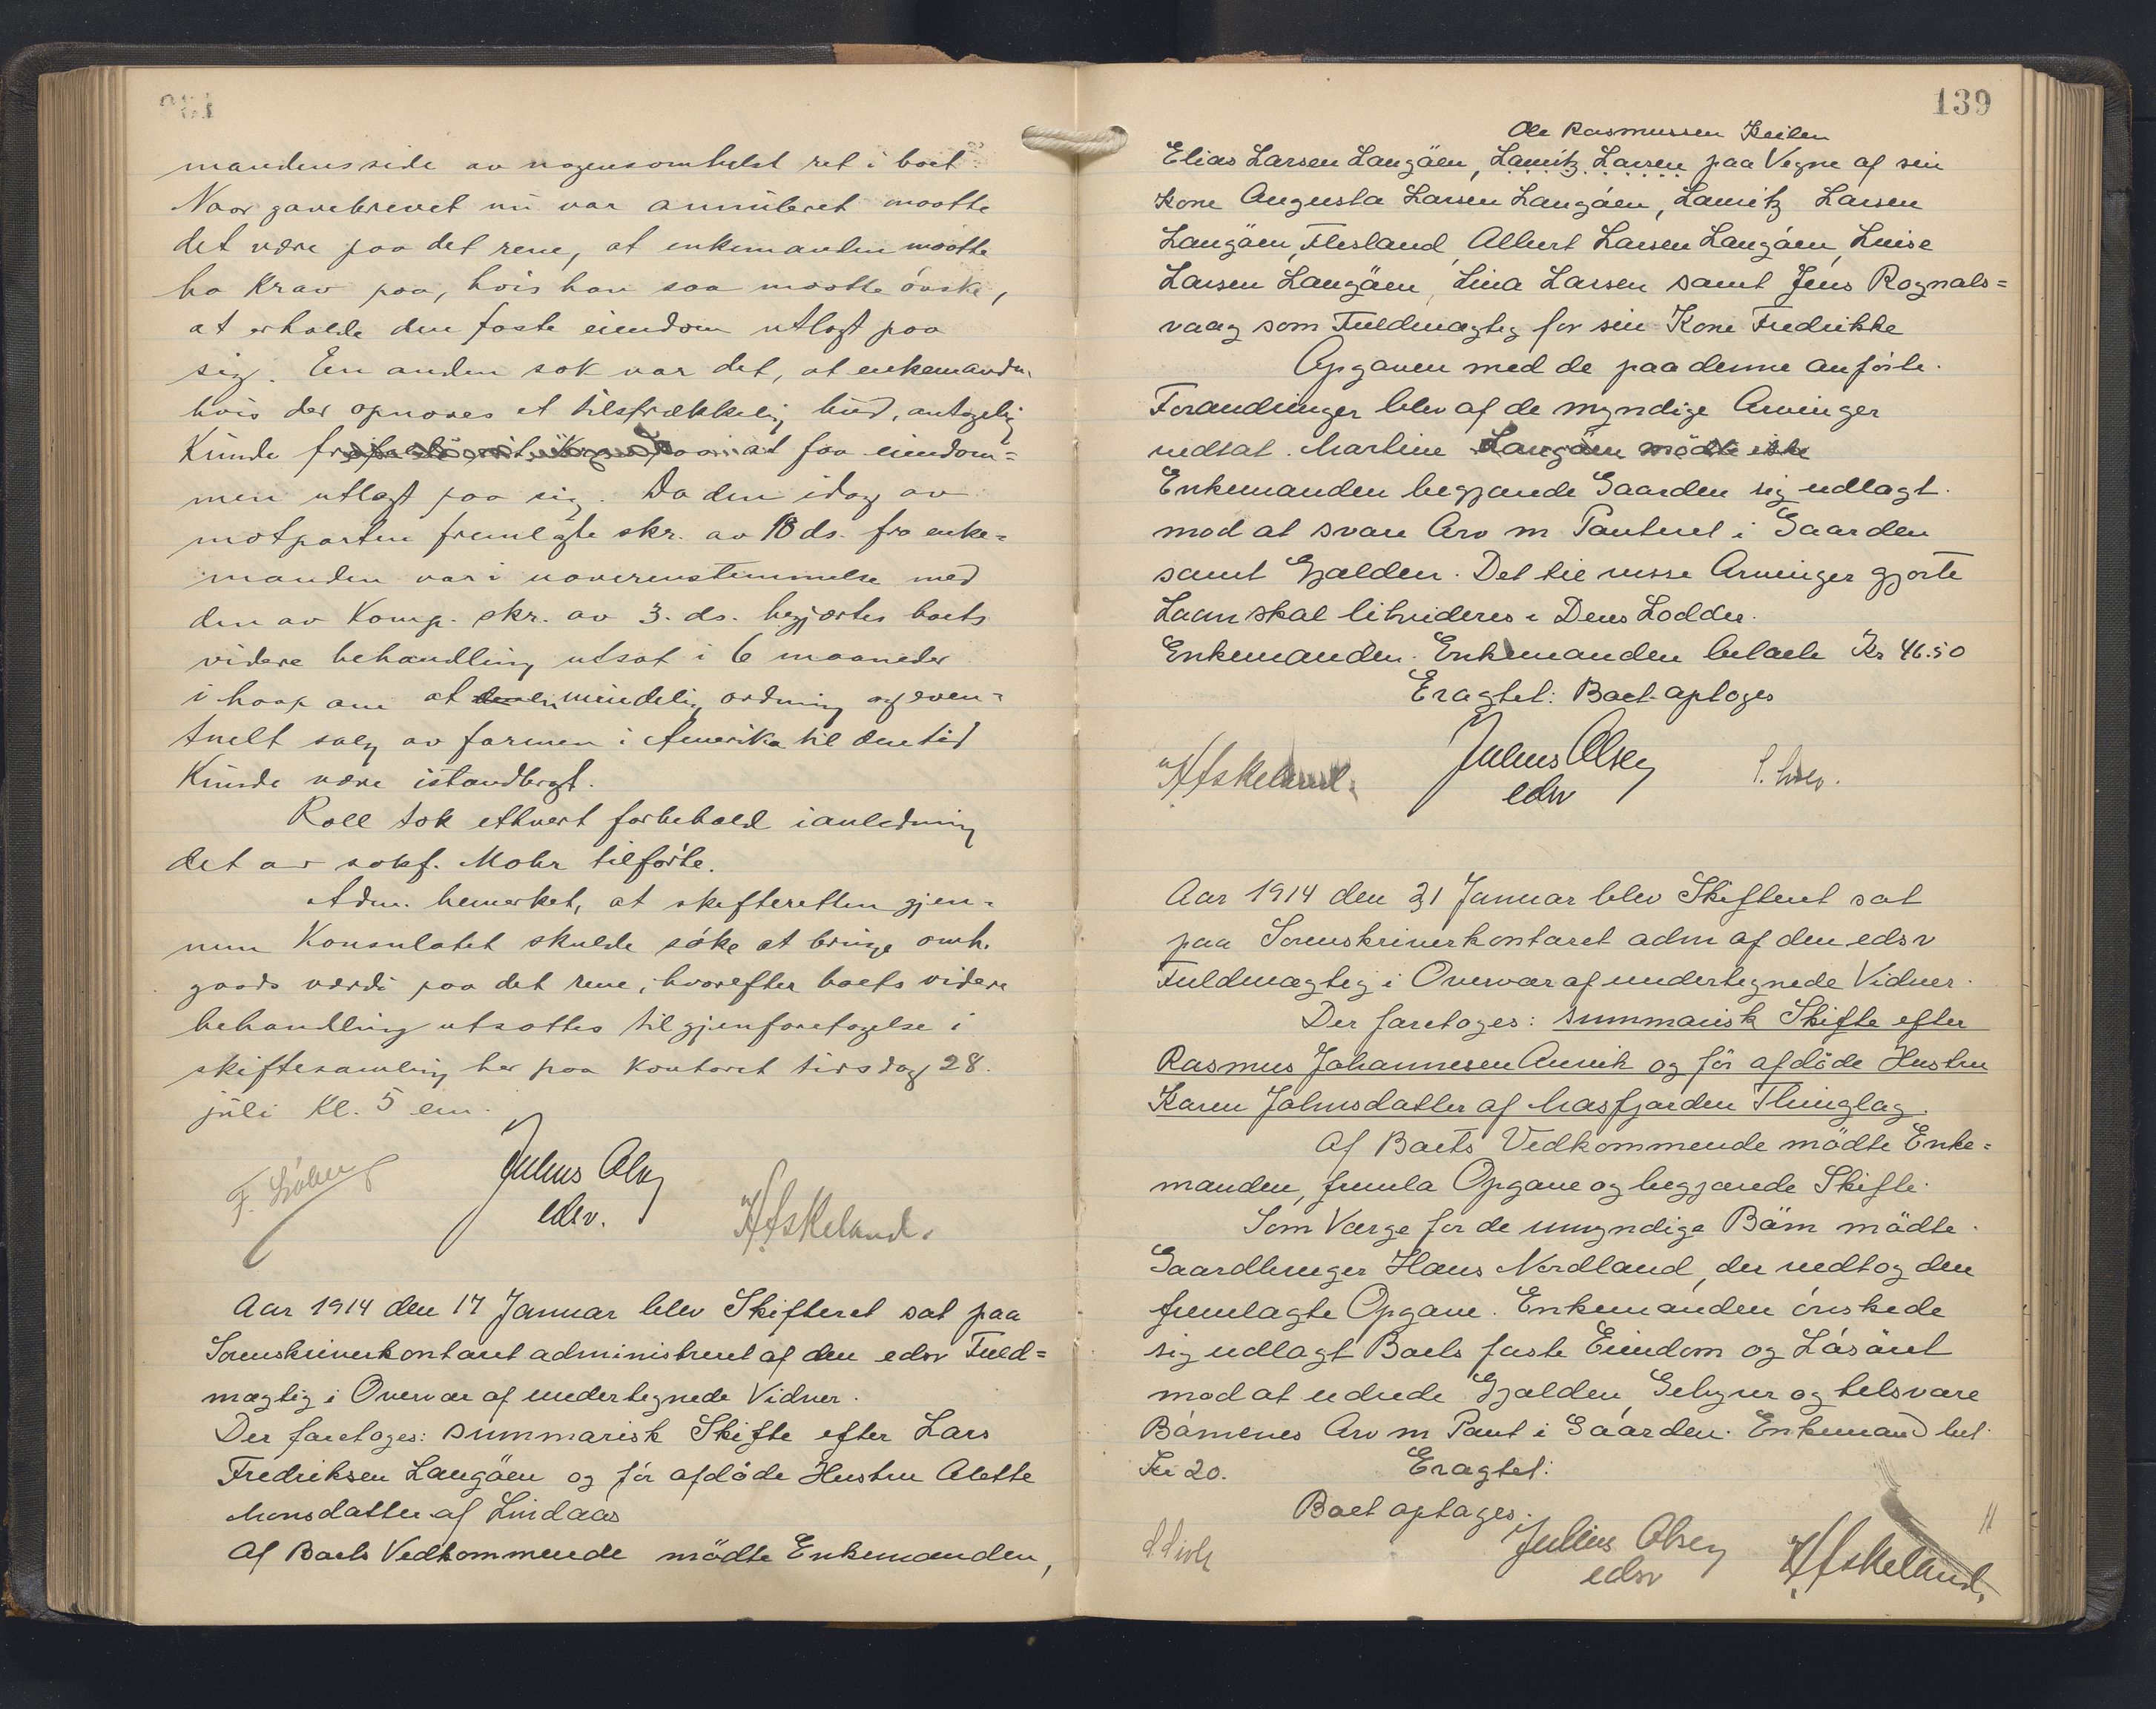 mandens side av nogensomhelst ret i boet
Naar gavebrevet nu var annuleret maatte
det være paa det rene, at enkemanden maatte
ha krav paa, hvis han saa maatte ønske,
at erholde den faste eiendom utlagt paa
sig. En anden sak var det, at enkemanden
hvis der opnoaes et tilstrækkelig bud, antagelig
Kunde at faa eiendom=
men utlagt paa sig. Da den idag av
motparten fremlagte skr. av 18 ds. fra enke=
manden var i uoverenstemmelse med
den av Komp. skr. av 3. ds. begjærtes boets
videre behandling utsat i 6 maaneder
i haap om at mindelig ordning og even=
tuelt salg av farmen i Amerika til den tid
Kunde være istandbragt.
Roll tok ethvert forbehold i anledning
det av sakf. Mohr tilførte.
Adm. bemerket, at skifteretten gjen=
nem Konsulatet skulde søke at bringe omh.
gaards værdi paa det rene, hvorefter boets videre
behandling utsattes til gjenforetagelse i
skiftesamling her paa Kontoret tirsdag 28.
juli Kl. 5 em.
Julius Olsen
edsv.
H. Askeland.
Aar 1914 den 17 Januar blev Skifteret sat paa
Sorenskriverkontoret administreret af den edsv Fuld=
mægtig i Overvær af undertegnede Vidner.
Der foretoges: summarisk Skifte efter Lars
Fredriksen Langøen og før afdøde Hustru Alette
Monsdatter af Lindaas
Af Boets Vedkommende mødte Enkemanden,
139
Ole Rasmussen Keilen
Elias Larsen Langøen, Lauritz Larsen paa Vegne af sin
Kone Augusta Larsen Langøen, Lauritz Larsen
Langøen, Flesland, Albert Larsen Langøen, Luise
Larsen Langøen, Lina Larsen samt Jens Rognals=
vaag som Fuldmægtig for sin Kone Fredrikke
Opgaven med de paa denne anførte
Forandringer blev af de myndige Arvinger
vedtat. Martine Langøen mødte ikke
Enkemanden begjærede Gaarden sig udlagt
mod at svare Arv m Panteret i Gaarden
samt Gjælden. Det til visse Arvinger gjorte
Laan skal likvideres i Deres Lodder.
Enkemanden. Enkemanden betalte Kr 46.50
Eragtet: Boet optoges
H. Askeland.
Julius Olsen
edsv
Aar 1914 den 21 Januar blev Skifteret sat
paa Sorenskriverkontoret adm af den edsv
Fuldmægtig i Overvær af undertegnede Vidner.
Der foretoges: summarisk Skifte efter
Rasmus Johannesen Andvik og før afdøde Hustru
Karen Johnsdatter af Masfjorden Thinglag.
Af Boets Vedkommende mødte Enke=
manden, fremla Opgave og begjærede Skifte.
Som Værge for de umyndige Børn mødte
Gaardbruger Hans Nordland, der vedtog den
fremlagte Opgave. Enkemanden ønskede
sig udlagt Boets faste Eiendom og Løsøret
mod at udrede Gjælden, Gebyrer og tilsvare
Børnenes Arv m Pant i Gaarden. Enkemand bet.
Kr 20.
Eragtet:
Boet optages.
Julius Olsen
edsv
H. Askeland.